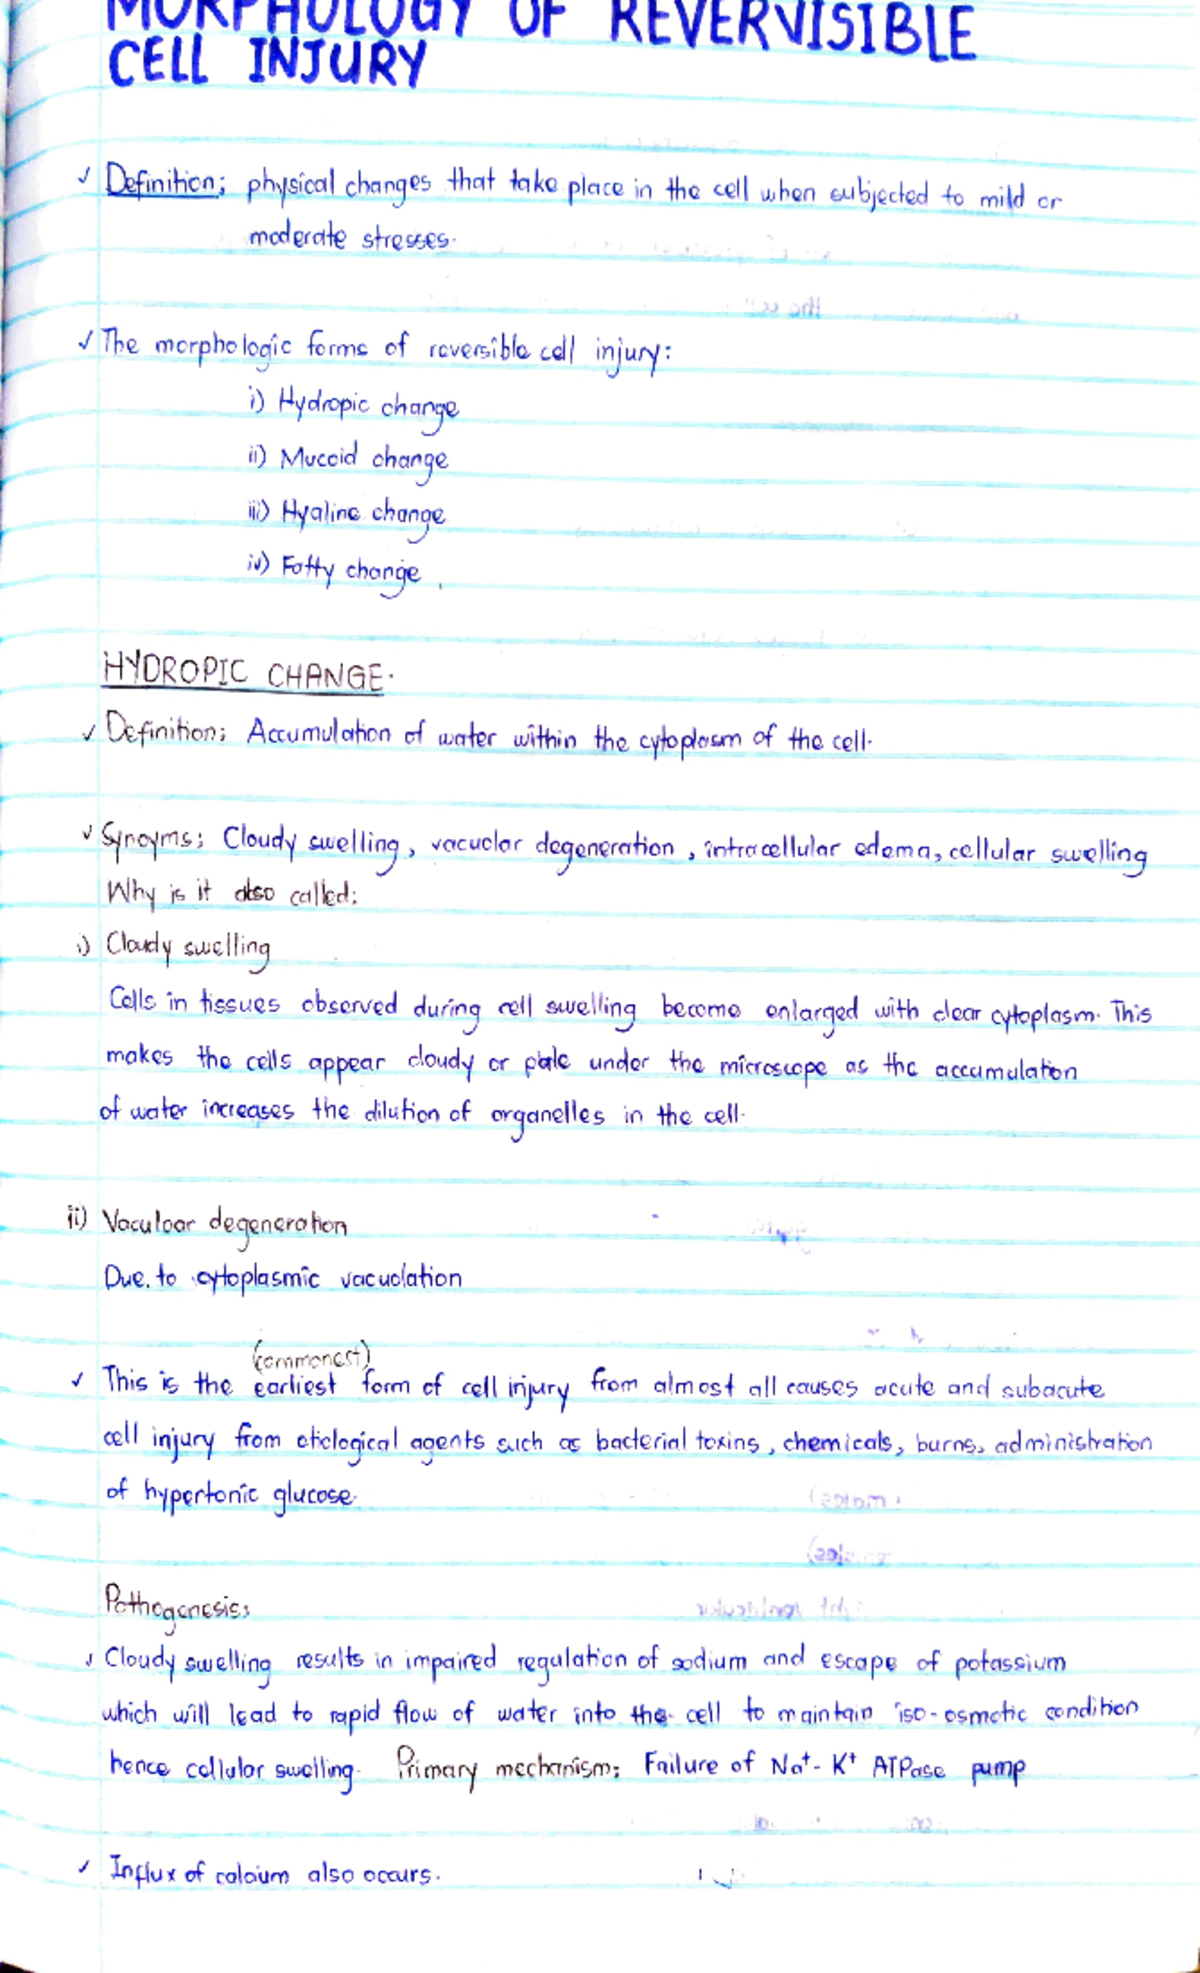 MORPHOLOGY OF REVERVISIBLE
CELL INJURY
✓ Definition; physical changes that take place in the cell when subjected to mild or
moderate stresses.
✓ The morphologic forms of reversible cell injury:
i) Hydropic change
ii) Mucoid change
iii) Hyaline change
iv) Fatty change
HYDROPIC CHANGE.
✓ Definition; Accumulation of water within the cytoplasm of the cell.
✓ Synoyms; Cloudy swelling, vacuolar degeneration, intracellular edema, cellular swelling
Why is it also called:
i) Cloudy swelling
Cells in tissues observed during cell swelling become enlarged with clear cytoplasm. This
makes the cells appear cloudy or pale under the microscope as the accumulation
of water increases the dilution of organelles in the cell.
ii) Vaculoar degeneration
Due to cytoplasmic vacuolation
(commonest)
✓ This is the earliest form of cell injury from almost all causes acute and subacute
cell injury from etiological agents such as bacterial toxins, chemicals, burns, administration
of hypertonic glucose.
Pathogenesis;
✓ Cloudy swelling results in impaired regulation of sodium and escape of potassium
which will lead to rapid flow of water into the cell to maintain iso-osmotic condition
hence cellular swelling. Primary mechanism; Failure of Na⁺- K⁺ ATPase pump
✓ Influx of calcium also occurs.